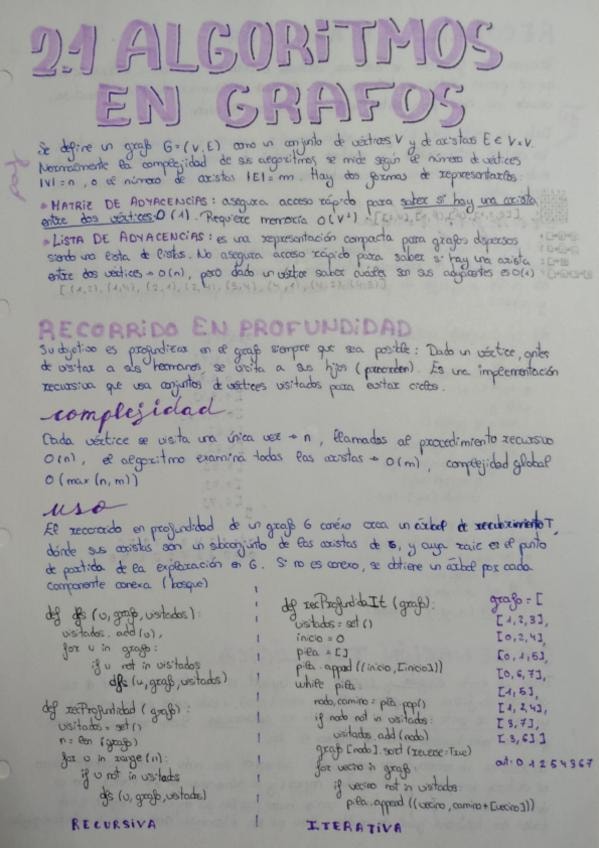 2.1 ALGORITMOS
EN GRAFOS
Se define un grafo G=(V,E) como un conjunto de vértices V y de aristas E ∈ V×V.
Normalmente la complejidad de sus algoritmos se mide según el número de vértices
|V|=n, o el número de aristas |E|=m. Hay dos formas de representarlos:
* MATRIZ DE ADYACENCIAS: asegura acceso rápido para saber si hay una arista
entre dos vértices O(1). Requiere memoria O(V²)
* LISTA DE ADYACENCIAS: es una representación compacta para grafos dispersos
siendo una lista de listas. No asegura acceso rápido para saber si hay una arista
entre dos vértices → O(n), pero dado un vértice saber cuáles son sus adyacentes es O(1)
[(1,2), (1,4), (2,1), (2,4), (3,4), (4,1), (4,2), (4,3)]
RECORRIDO EN PROFUNDIDAD
Su objetivo es profundizar en el grafo siempre que sea posible: Dado un vértice, antes
de visitar a sus hermanos, se visita a sus hijos (preorden). Es una implementación
recursiva que usa conjuntos de vértices visitados para evitar ciclos.
complejidad
Cada vértice se visita una única vez → n, llamadas al procedimiento recursivo
O(n), el algoritmo examina todas las aristas → O(m), complejidad global
O(max(n,m))
uso
El recorrido en profundidad de un grafo G conexo crea un árbol de recubrimiento T,
dónde sus aristas son un subconjunto de las aristas de G, y cuya raíz es el punto
de partida de la exploración en G. Si no es conexo, se obtiene un árbol por cada
componente conexa (bosque)
def dfs (v, grafo, visitados):
visitados.add(v),
for u in grafo:
if u not in visitados
dfs(u, grafo, visitados)
def recProfundidad (grafo):
visitados = set()
n = len (grafo)
for v in range(n):
if v not in visitads
dfs (v, grafo, visitados)
RECURSIVA
def recProfundidaIt (grafo):
visitados = set()
inicio = 0
pila = []
pila.append((inicio,[inicio]))
while pila:
nodo, camino = pila.pop()
if nodo not in visitados:
visitados.add(nodo)
grafo[nodo].sort(reverse=True)
for vecino in grafo:
if vecino not in visitados:
pila.append((vecino, camino+[vecino]))
ITERATIVA
grafo = [
[1,2,3],
[0,2,4],
[0,1,5],
[0,6,7],
[1,5],
[1,2,4],
[3,7],
[3,6]]
out: 0 1 2 5 4 3 6 7